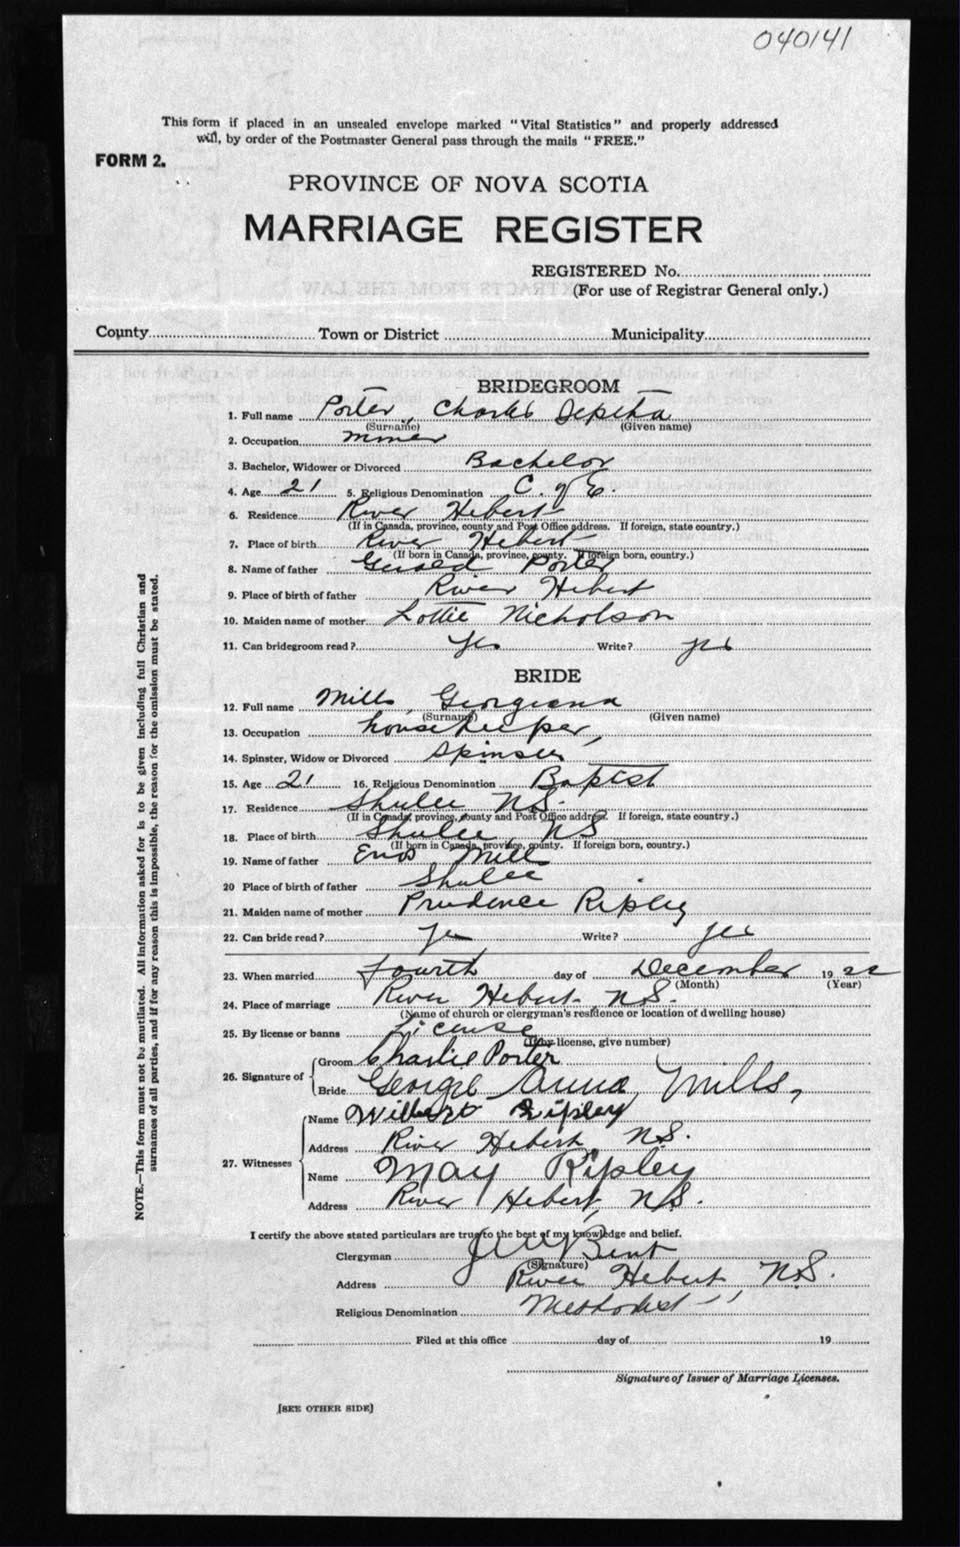 040141
This form if placed in an unsealed envelope marked "Vital Statistics" and properly addressed
will, by order of the Postmaster General pass through the mails "FREE."
FORM 2.
PROVINCE OF NOVA SCOTIA
MARRIAGE REGISTER
REGISTERED No.
(For use of Registrar General only.)
County Town or District Municipality
BRIDEGROOM
1. Full name Porter, Charles
(Surname) (Given name)
2. Occupation miner
3. Bachelor, Widower or Divorced Bachelor
4. Age 21 5. Religious Denomination C. of E.
6. Residence River Hebert
(If in Canada, province, county and Post Office address. If foreign, state country.)
7. Place of birth River Hebert
(If born in Canada, province, county. If foreign born, country.)
8. Name of father Gerald Porter
9. Place of birth of father River Hebert
10. Maiden name of mother Lottie Nicholson
11. Can bridegroom read? yes Write? yes
BRIDE
12. Full name Mills, Georgeana
(Surname) (Given name)
13. Occupation housekeeper,
14. Spinster, Widow or Divorced Spinster
15. Age 21 16. Religious Denomination Baptist
17. Residence Shulee N.S.
(If in Canada, province, county and Post Office address. If foreign, state country.)
18. Place of birth Shulee, N S
(If born in Canada, province, county. If foreign born, country.)
19. Name of father Enos Mills
20 Place of birth of father Shulee
21. Maiden name of mother Prudence Ripley
22. Can bride read? yes Write? yes
23. When married fourth day of December 1922
(Month) (Year)
24. Place of marriage River Hebert N.S.
(Name of church or clergyman's residence or location of dwelling house)
25. By license or banns License
(If by license, give number)
26. Signature of Groom Charlie Porter
Bride George Anna Mills,
27. Witnesses Name Wilbert Ripley
Address River Hebert, N.S.
Name May Ripley
Address River Hebert, N.S.
I certify the above stated particulars are true to the best of my knowledge and belief.
Clergyman Bent
(Signature)
Address River Hebert N.S.
Religious Denomination Methodist
Filed at this office day of 19
Signature of Issuer of Marriage Licenses.
[SEE OTHER SIDE]
NOTE.—This form must not be mutilated. All information asked for is to be given including full Christian and
surnames of all parties, and if for any reason this is impossible, the reason for the omission must be stated.